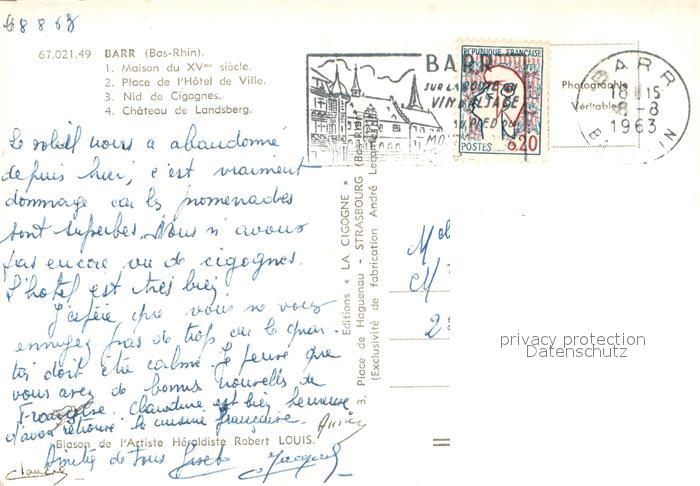 8 8 63
67.021.49 BARR (Bas-Rhin).
1. Maison du XVme siècle.
2. Place de l'Hôtel de Ville.
3. Nid de Cigognes.
4. Château de Landsberg.
Le soleil nous a abandonné
depuis hier, c'est vraiment
dommage car les promenades
sont superbes. Nous n'avons
pas encore vu de cigognes.
L'hotel est très bien
J'espère que vous ne vous
ennuyez pas de trop car le quar-
tier doit être calme. Je pense que
vous avez de bonnes nouvelles de
Françoise. Claudine est bien heureuse
d'avoir retrouvé la cuisine française.
Blason de l'Artiste Héraldiste Robert LOUIS.
Amitiés de tous
Jacques
BARR
SUR LA ROUTE DU
VIN D'ALSACE
AU PIED DU
MO
REPUBLIQUE FRANÇAISE
POSTES 0.20
Photographie
Véritable
BARR
18 15
8-8
1963
Editions « LA CIGOGNE »
3, Place de Haguenau - STRASBOURG (Bas-Rhin)
(Exclusivité de fabrication André Leconte)
privacy protection
Datenschutz